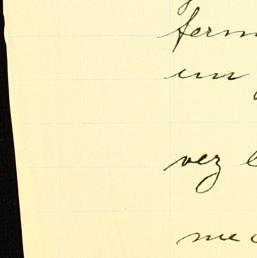 ferm
un
vez
me